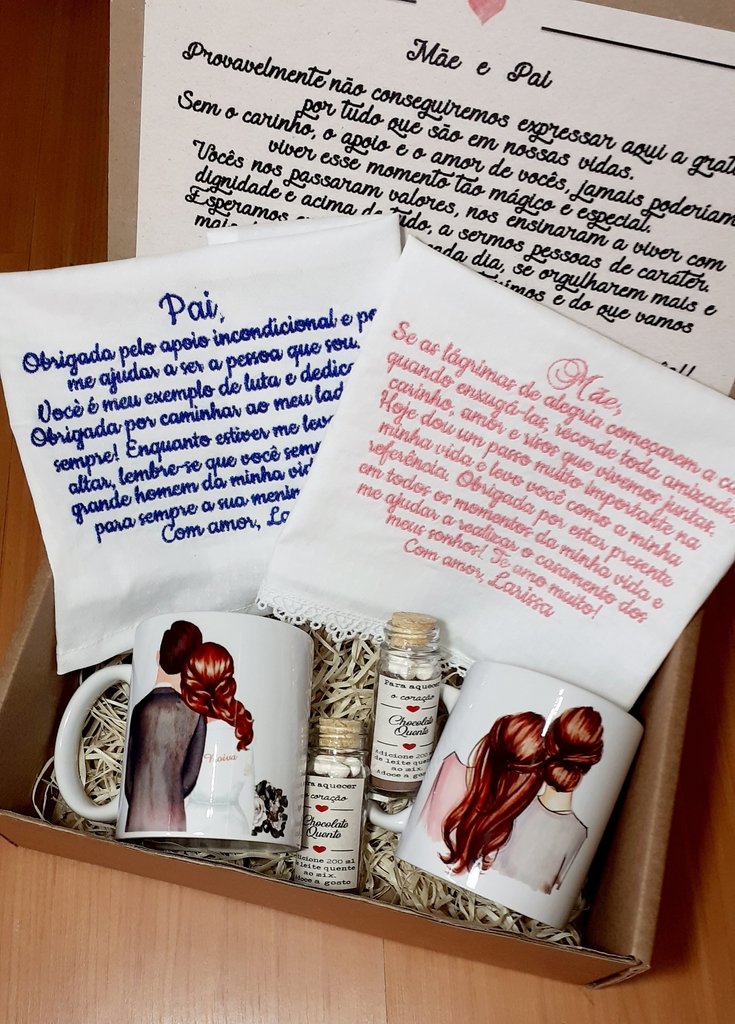 Mãe e Pai
Provavelmente não conseguiremos expressar aqui a
por tudo que são em nossas vidas.
Sem o carinho, o apoio e o amor de vocês, jamais poderíam
viver esse momento tão mágico e especial.
Vocês nos passaram valores, nos ensinaram a viver com
dignidade e acima de tudo, a sermos pessoas de caráter.
Esperamos
cada dia, se orgulharem mais e
e do que vamos
Pai,
Obrigada pelo apoio incondicional e
me ajudar a ser a pessoa que sou.
Você é meu exemplo de luta e
Obrigada por caminhar ao meu
sempre! Enquanto estiver me
altar, lembre-se que você
grande homem da minha
para sempre a sua
Com amor,
Mãe,
Se as lágrimas de alegria começarem a
quando enxugá-las, recorde toda amizade,
carinho, amor e risos que vivemos juntas.
Hoje dou um passo muito importante na
minha vida e levo você como a minha
referência. Obrigada por estar presente
em todos os momentos da minha vida e
me ajudar a realizar o casamento dos
meus sonhos! Te amo muito!
Com amor, Larissa
Noiva
Para aquecer
o coração
Chocolate
Quente
Adicione 200 ml
de leite quente
ao mix.
Adoce a gosto
Para aquecer
o coração
Chocolate
Quente
Adicione 200
de leite quen
ao mix.
Adoce a gost